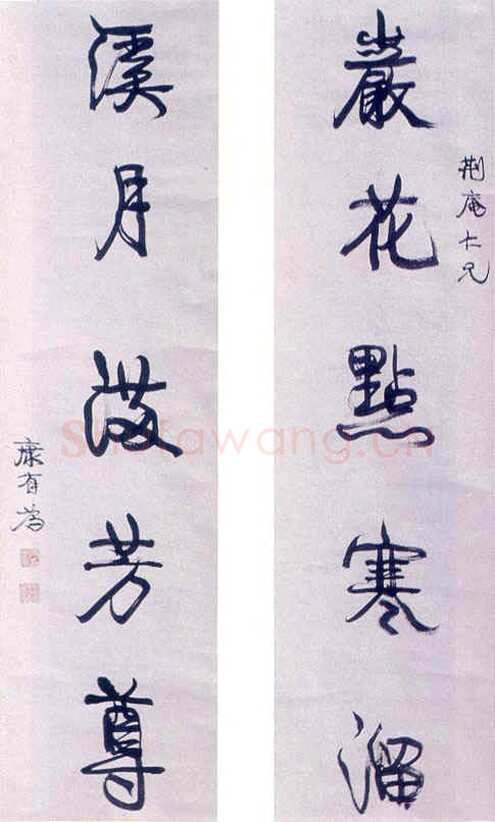 巖花點寒溜
荆庵仁兄
溪月滿芳尊
康有為
Shufawang.cn